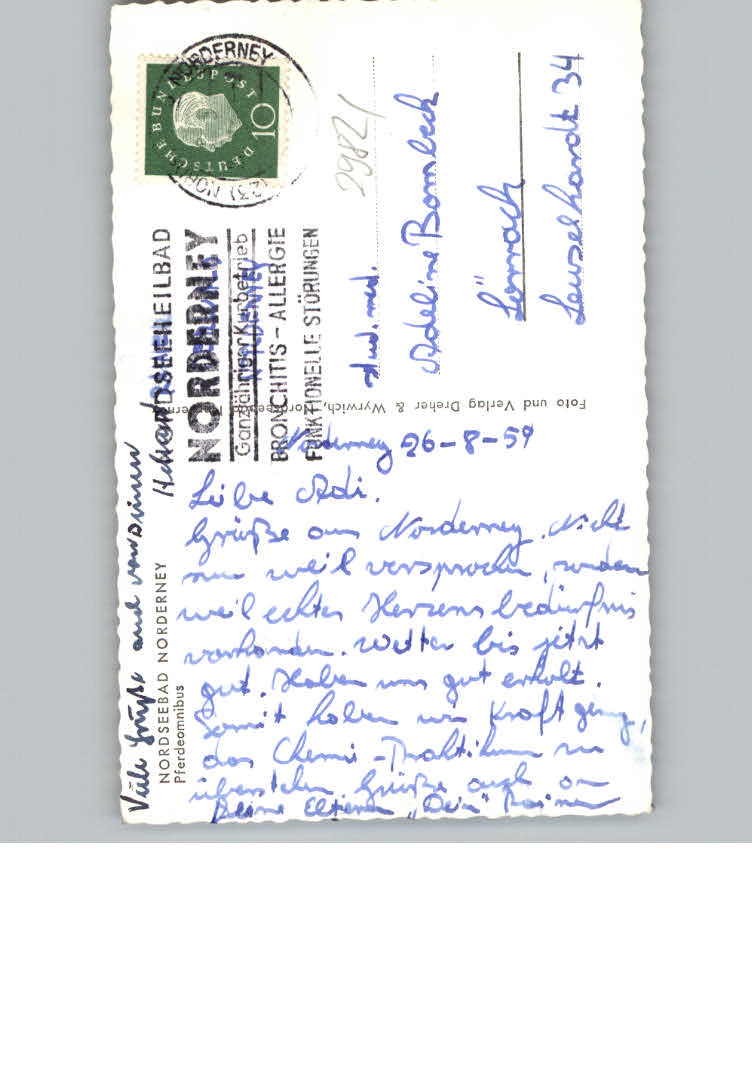 NORDERNEY
(23) NOR
DEUTSCHE BUNDESPOST
10
NORDSEEHEILBAD
NORDERNEY
Ganzjähriger Kurbetrieb
BRONCHITIS – ALLERGIE
FUNKTIONELLE STÖRUNGEN
29821
stud. med.
Adeline Bombech
Lörrach
34
Foto und Verlag Dreher & Wyrwich, Nordseebad
Norderney 26-8-59
Liebe Adi.
Grüße aus Norderney. Nicht
nur weil versprochen, sondern
weil echtes Herzensbedürfnis
vorhanden. Wetter bis jetzt
gut. Haben uns gut erholt.
Somit haben wir Kraft genug,
das Chemie-Praktikum zu
überstehen. Grüße auch an
Deine Elteren „Dein" Rainer
Viele Grüße auch von
NORDSEEBAD NORDERNEY
Pferdeomnibus